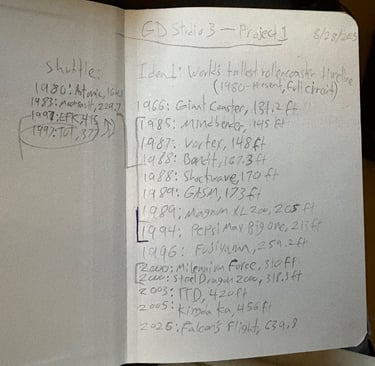 shuttle:
1980: Atomic,
1983: Moonsault, 229.7
1997: EFK, 415
1997: TOT, 377
GD Studio 3 — Project 1
8/28/2025
Idea 1: World's tallest rollercoaster timeline
(1980-present, full circuit)
1966: Giant Coaster, 131.2 ft
1985: Mindbender, 145 ft
1987: Vortex, 148 ft
1988: Bandit, 167.3 ft
1988: Shockwave, 170 ft
1989: GASM, 173 ft
1989: Magnum XL 200, 205 ft
1994: Pepsi Max Big One, 213 ft
1996: Fujiyama, 259.2 ft
2000: Millennium Force, 310 ft
2000: Steel Dragon 2000, 318.3 ft
2003: TTD, 420 ft
2005: Kingda Ka, 456 ft
2025: Falcon's Flight, 639.8